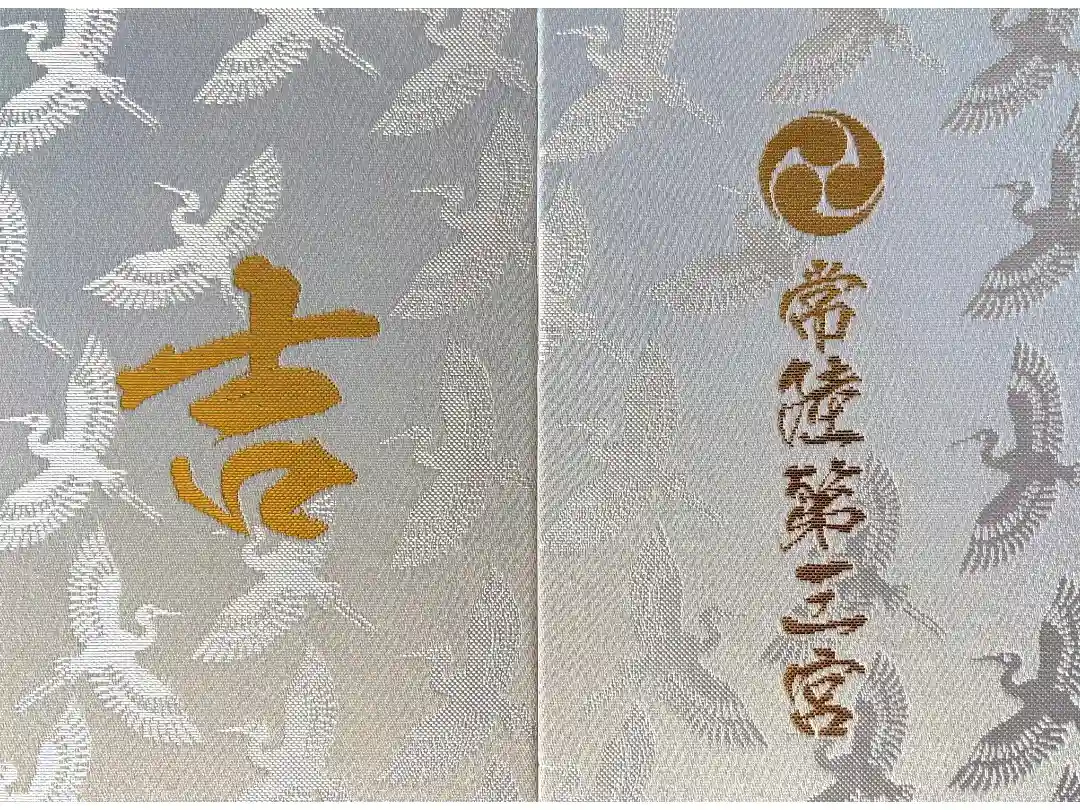 吉
常陸第三宮